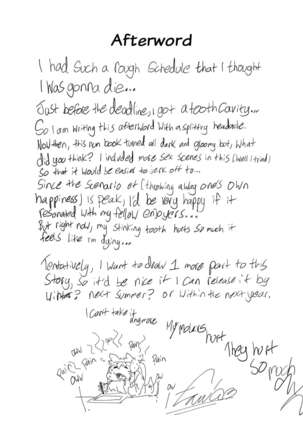 Afterword
I had such a rough schedule that I thought
I was gonna die...
Just before the deadline, I got a tooth cavity...
So I am writing this afterword with a splitting headache.
Now then, this nun book turned all dark and gloomy but, what
did you think? I included more sex scenes in this (Well I tried)
so that it would be easier to jerk off to...
Since the scenario of [throwing away one's own
happiness] is peak, I'd be very happy if it
resonated with my fellow enjoyers...
But right now, my stinking tooth hurts so much it
feels like I'm dying...
Tentatively, I want to draw 1 more part to this
story, so it'd be nice if I can release it by
winter? next summer? or within the next year.
I can't take it
anymore
My molars
hurt
They hurt
so much
ow
pain
pain
pain
pain
ow
ow
ow